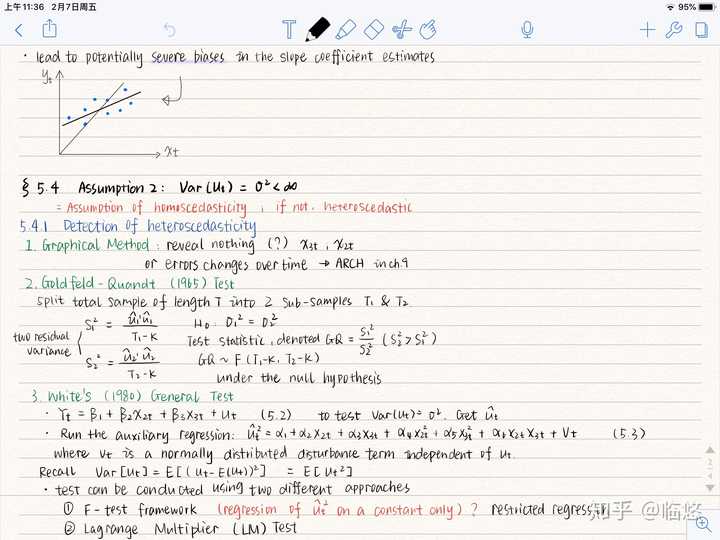 上午11:36 2月7日周五
95%
· lead to potentially severe biases in the slope coefficient estimates
yt
xt
§ 5.4 Assumption 2: Var(ut) = σ² < ∞
= Assumption of homoscedasticity, if not, heteroscedastic
5.4.1 Detection of heteroscedasticity
1. Graphical Method: reveal nothing (?) x3t, x2t
or errors changes over time → ARCH in ch.9
2. Goldfeld-Quandt (1965) Test
split total sample of length T into 2 sub-samples T1 & T2
two residual variance
S1² = û1'û1 / T1-k H0: σ1² = σ2²
Test statistic, denoted GQ = S1²/S2² (S2² > S1²)
S2² = û2'û2 / T2-k GQ ~ F(T1-k, T2-k)
under the null hypothesis
3. White's (1980) General Test
· Yt = β1 + β2x2t + β3x3t + ut (5.2) to test Var(ut) = σ². Get ût
· Run the auxiliary regression: ût² = α1 + α2x2t + α3x3t + α4x2t² + α5x3t² + α6x2tx3t + vt (5.3)
where vt is a normally distributed disturbance term independent of ut.
Recall Var[ut] = E[(ut - E(ut))²] = E[ut²]
· test can be conducted using two different approaches
① F-test framework (regression of ût² on a constant only)? restricted regression
② Lagrange Multiplier (LM) Test
知乎 @临悠